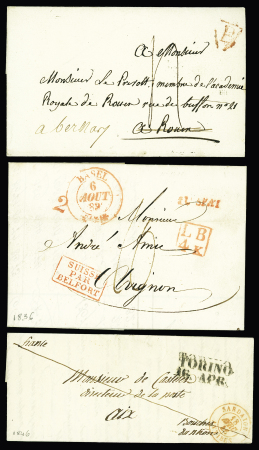 A Monsieur
Monsieur Le Prevost membre de l'académie
Royale de Rouen rue de buffon n° 21
à Bernay
à Rouen
BASEL
6
AOUT
2
Monsieur
LB
4 K
André
Avignon
SUISSE
PAR
BELFORT
1836
franco
TORINO
16 APR.
Monsieur de
directeur de la poste
aix
Bouches
du rhône
1846